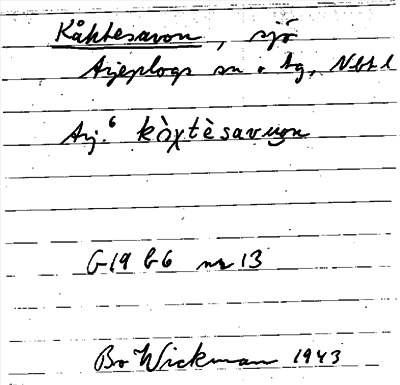 Kåhtesavon, sjö
Arjeplogs sn o tg, Nbt l
Arj.⁶ kòχtèsavuon
G19 b6 nr 13
Bo Wickman 1943